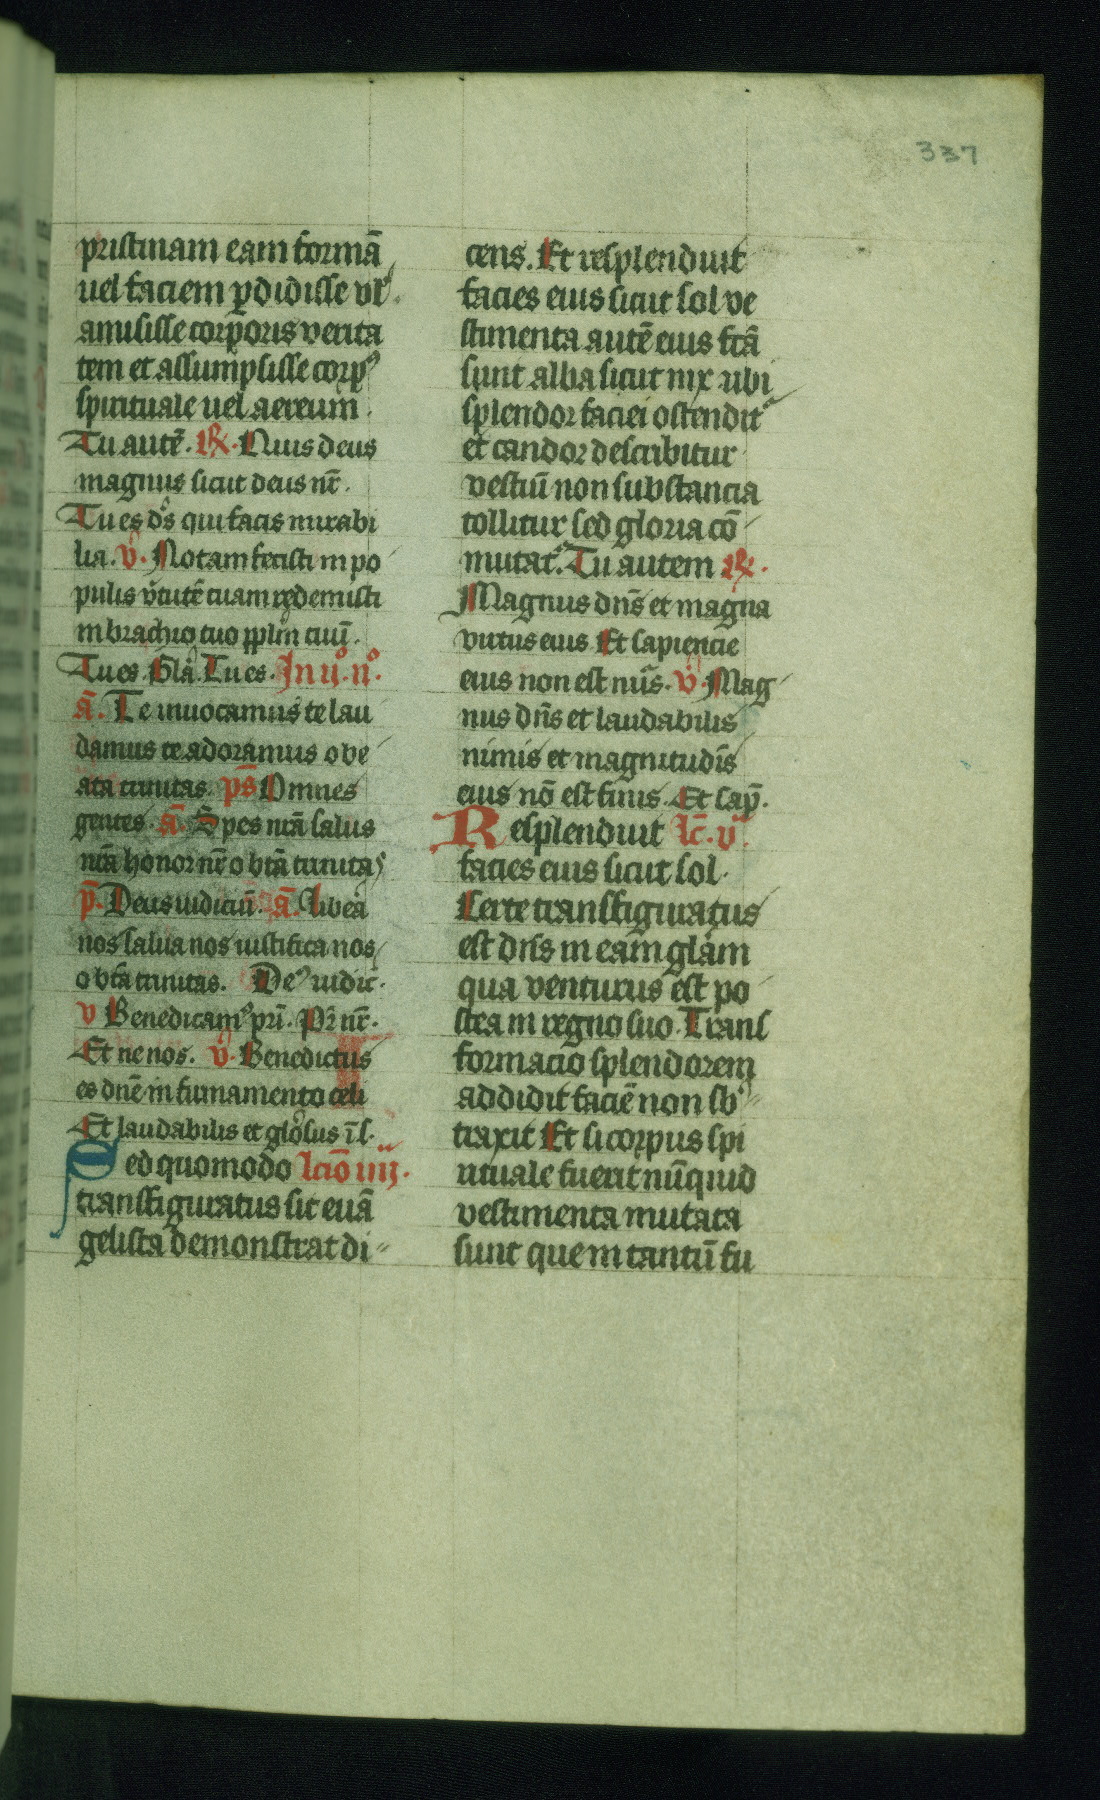 337
pristinam eam formā
uel faciem ꝑdidisse vl'
amisisse corporis verita
tem et assumpsisse corpꝰ
spirituale uel aereum.
Tu autē. R̸. Quis deus
magnus sicut deus nr̄.
Tu es ds̄ qui facis mirabi
lia. v̄. Notam fecisti in po
pulis v̄tutē tuam redemisti
in brachio tuo pplm̄ tuū.
Tu es. Gla. Tu es. In ijº. nº.
ā. Te inuocamus te lau
damus te adoramus o be
ata trinitas. ps̄ Omnes
gentes. ā. Spes nr̄a salus
nr̄a honor nr̄ o btā trinitas
p̄. Deus iudiciū. ā. Libera
nos salua nos iustifica nos
o btā trinitas. Deꝰ iudic̄.
v Benedicamꝰ pr̄i. Pr̄ nr̄.
Et ne nos. v̄. Benedictus
es dn̄e in firmamento celi
Et laudabilis et glōsus ī s.
Sed quomodo lcīo iiij.
transfiguratus sit euā
gelista demonstrat di
cens. Et resplenduit
facies eius sicut sol ve
stimenta autē eius fcā
sunt alba sicut nix ubi
splendor faciei ostendit᷑
et candor describitur
vestiū non substancia
tollitur sed gloria cō
mutat᷑. Tu autem R̸.
Magnus dn̄s et magna
virtus eius Et sapiencie
eius non est nūs. v̄. Mag
nus dn̄s et laudabilis
nimis et magnitudīs
eius nō est finis. Et sap̄.
Resplenduit lc̄. v.
facies eius sicut sol.
Certe transfiguratus
est dn̄s in eam glām
qua venturus est po
stea in regno suo. Trans
formacio splendorem
addidit faciē non sbꝰ
traxit Et si corpus spi
rituale fuerit nūquid
vestimenta mutata
sunt que in tantū fu